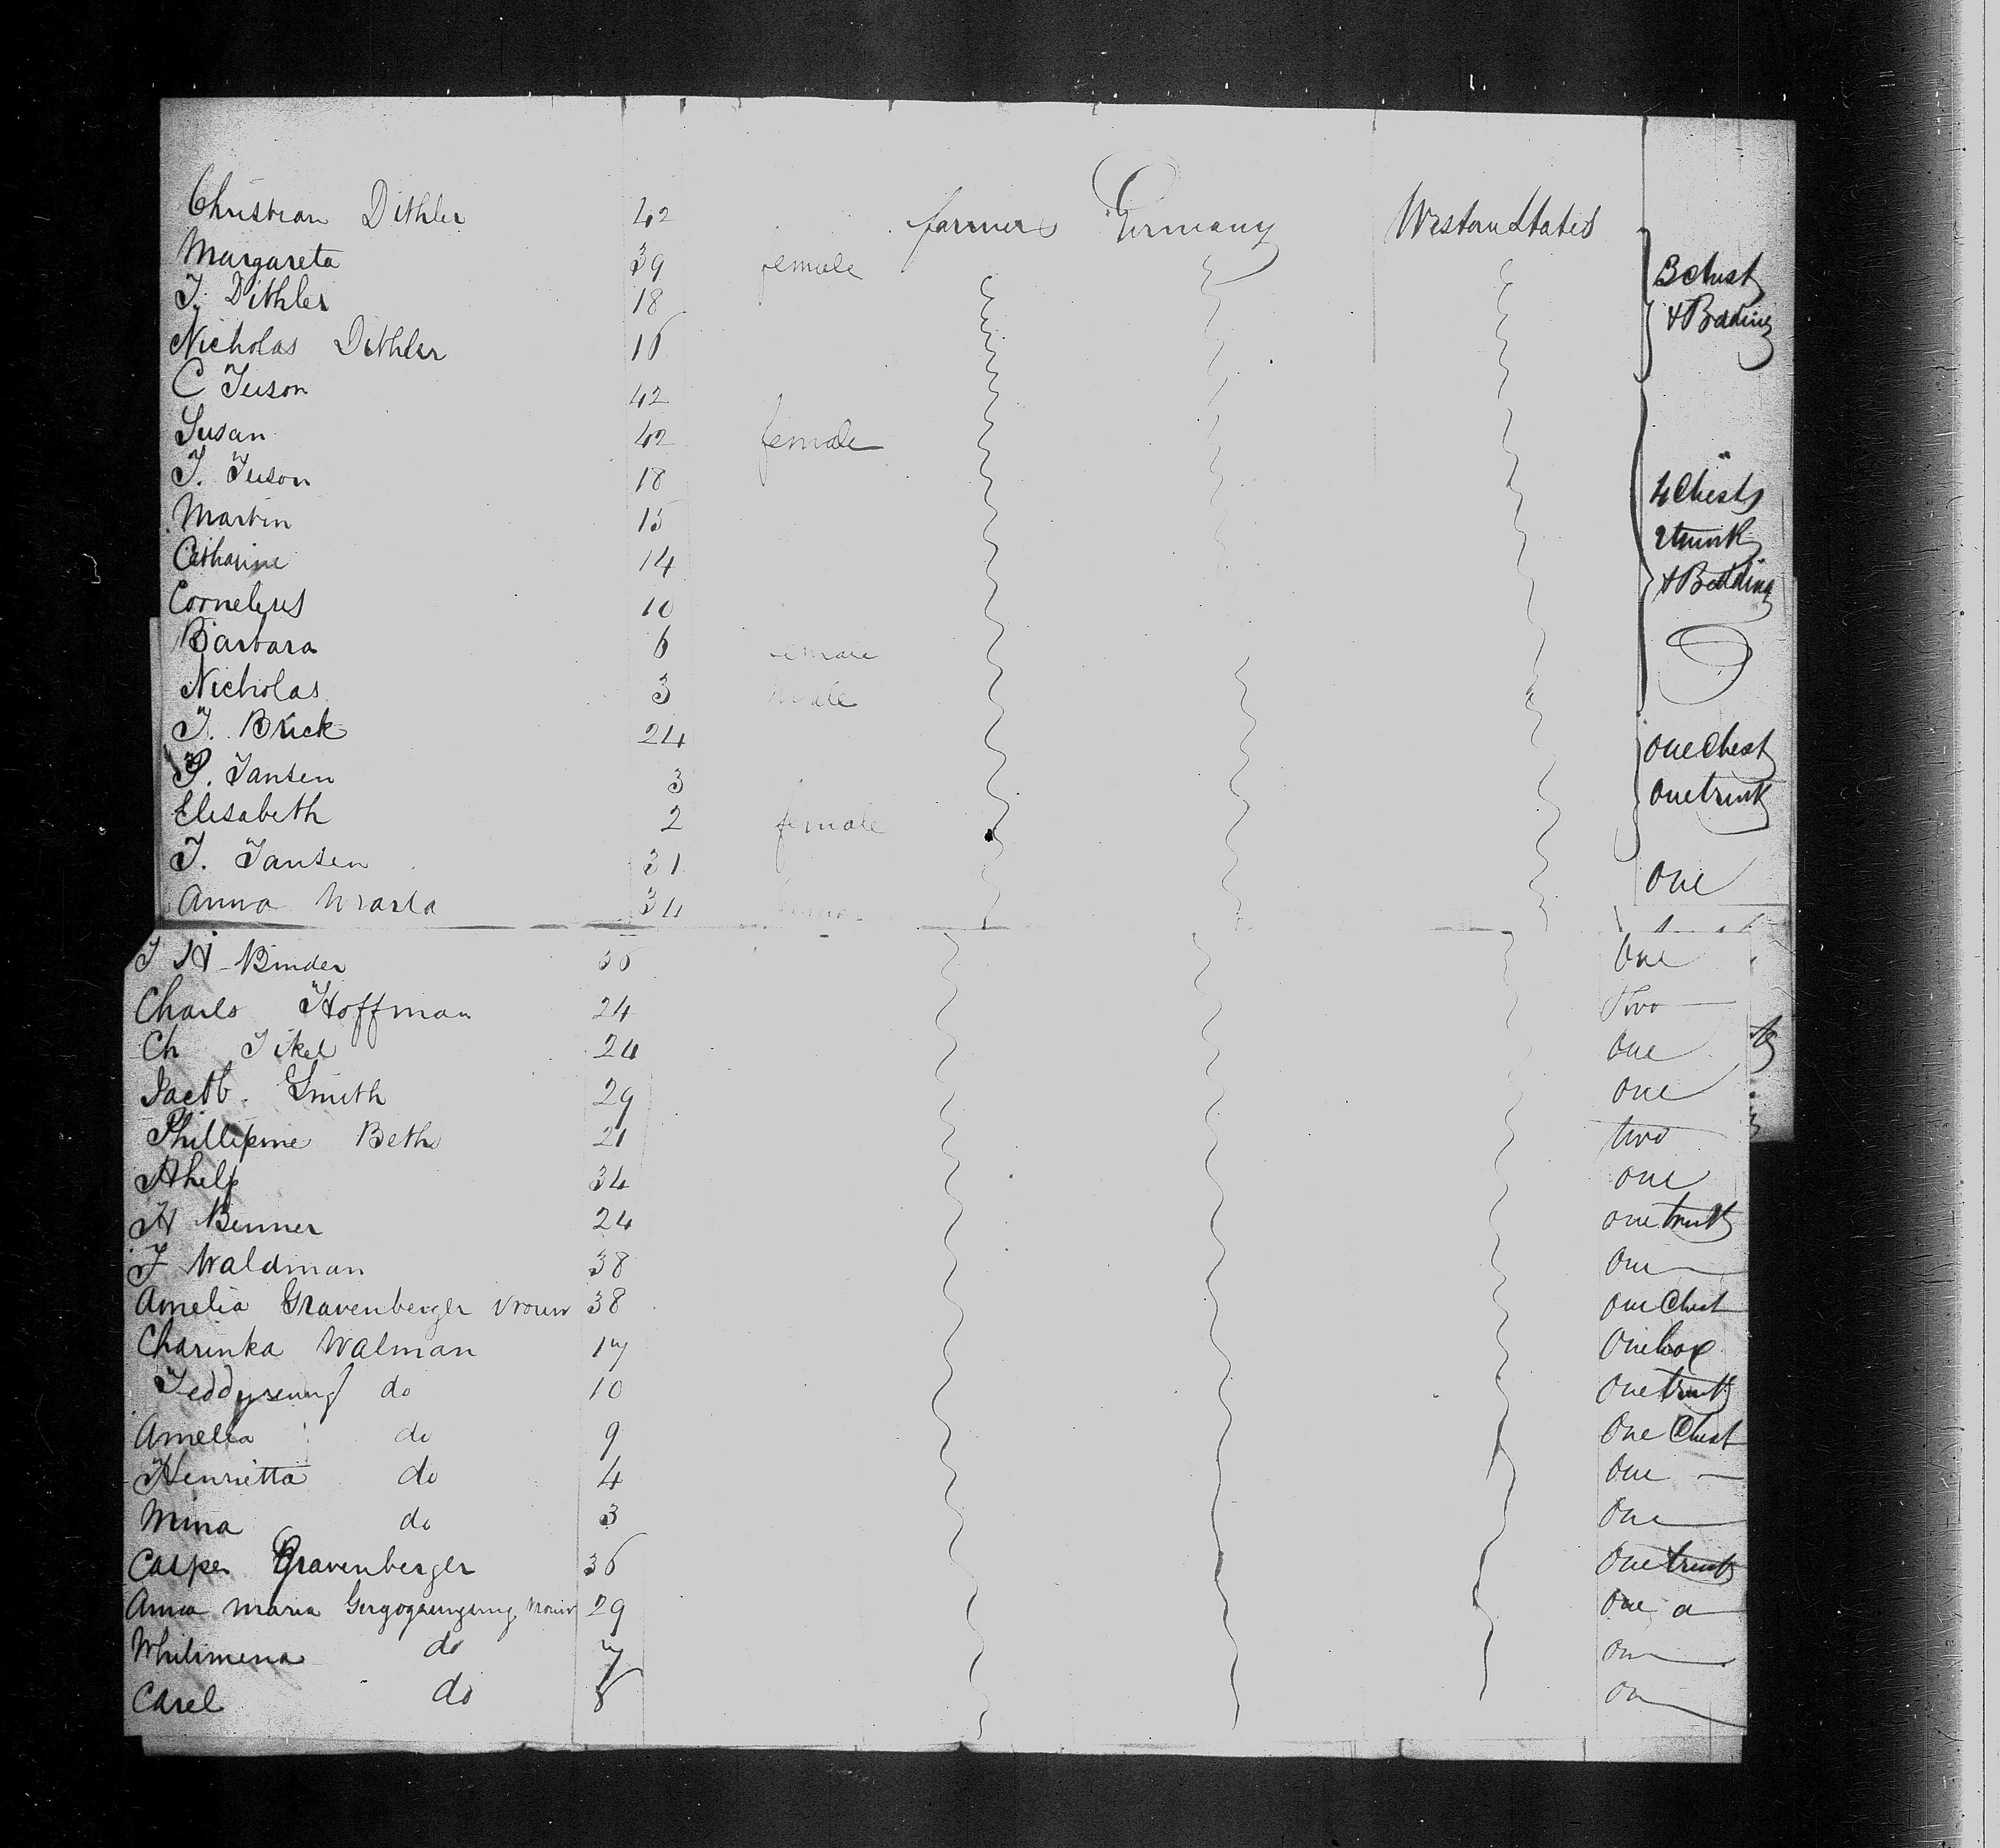 Christian Dithler 42 farmer Germany Western States
Margareta 39 female 3 Chest
J. Dithler 18 & Bedding
Nicholas Dithler 16
C Juson 42
Susan 42 female
J. Juson 18 4 Chests
Martin 15 2 trunk
Catharine 14 & Bedding
Cornelius 10
Barbara 6 female
Nicholas 3 male
J. Brick 24 one Chest
P. Jansen 3 one trunk
Elisabeth 2 female
J. Jansen 31 one
Anna Maria 34
J H Binder 36 One
Charls Hoffman 24 Two
Ch Tikel 24 One
Jacob Smith 29 one
Phillipine Beth 21 two
Ahelp 34 one
H Benner 24 one trunk
J Waldman 38 One
Amelia Gravenberger vrouw 38 one Chest
Charinka Walman 17 One box
do 10 One trunk
Amelia do 9 One Chest
Henrietta do 4 One
Mina do 3 One
Casper Gravenberger 36 One trunk
Anna Maria vrouw 29 One a
Whilimena do 7 On
Carel do 8 On